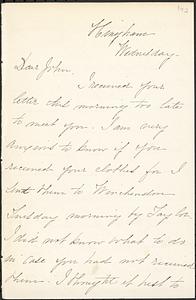 142
Hingham
Wednesday
Dear John,
I received your
letter this morning too late
to meet you. I am very
anxious to know if you
received your clothes for I
sent them to Winchendon
Tuesday morning by Taylor
I did not know what to do
in case you had not received
them. I thought it best to